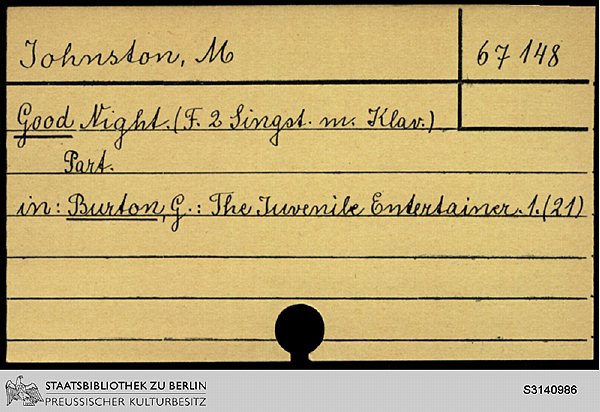 Johnston, M
67 148
Good Night. (F. 2 Singst. m. Klav.)
Part.
in: Burton, G.: The Juvenile Entertainer. 1. (21)
STAATSBIBLIOTHEK ZU BERLIN
PREUSSISCHER KULTURBESITZ
S3140986